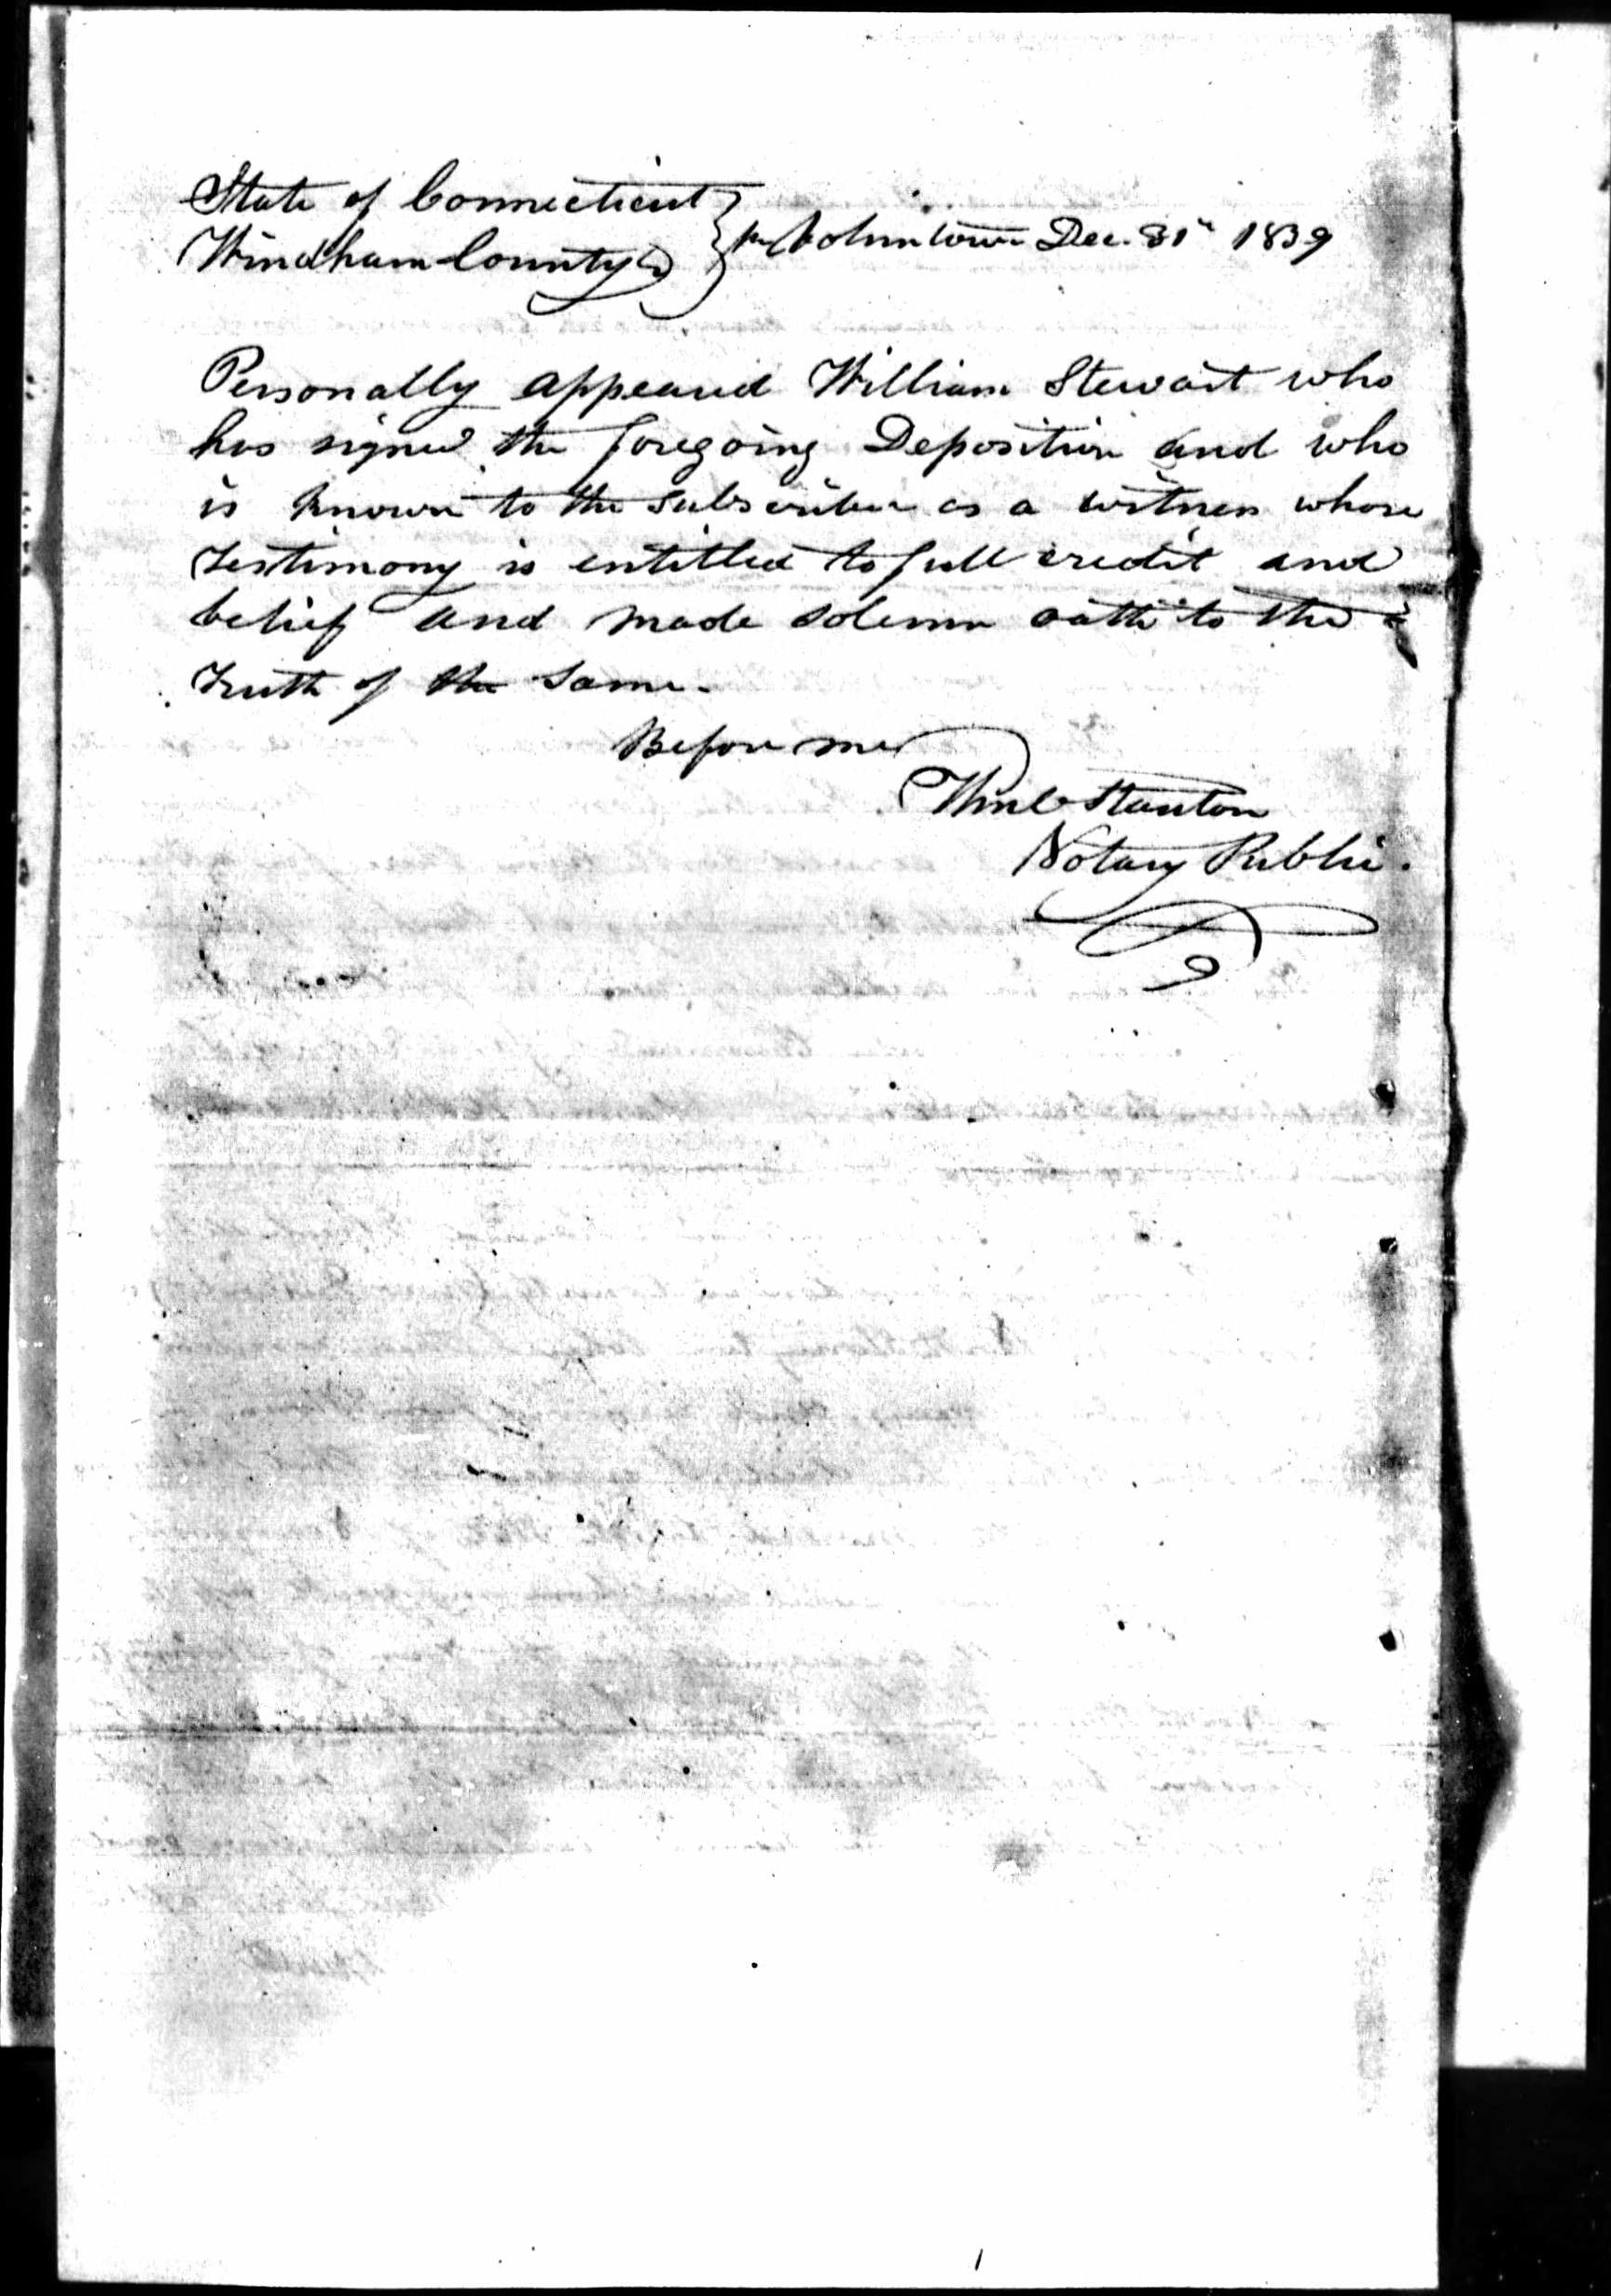 State of Connecticut
Windham County } ss Voluntown Dec. 31st 1839
Personally appeared William Stewart who
has signed the foregoing Deposition and who
is known to the subscriber as a witness whose
Testimony is entitled to full credit and
belief and made solemn oath to the
Truth of the same.
Before me
Wm C Stanton
Notary Public.